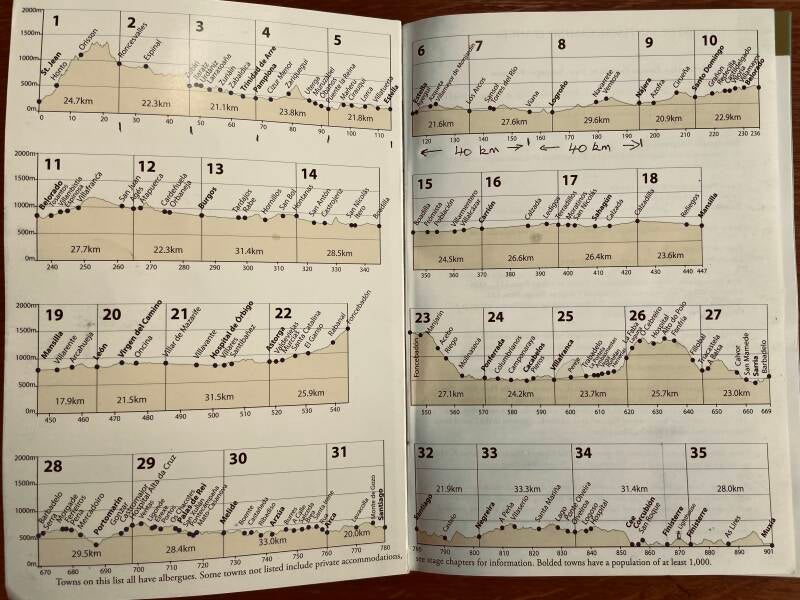 1 2 3 4 5
2000m
1500m
1000m
500m
0m
St. Jean Honto Orisson Roncesvalles Espinal Zubiri Larrasoaña Zuriáin Zabaldica Trinidad de Arre Pamplona Cizur Menor Zariquiegui Uterga Muruzábal Obanos Puente la Reina Mañeru Cirauqui Lorca Villatuerta Estella
24.7km 22.3km 21.1km 23.8km 21.8km
0 10 20 30 40 50 60 70 80 90 100 110
6 7 8 9 10
Estella Azqueta Villamayor de Monjardín Los Arcos Sansol Torres del Río Viana Logroño Navarrete Ventosa Nájera Azofra Cirueña Santo Domingo Grañón Belorado
21.6km 27.6km 29.6km 20.9km 22.9km
120 130 140 150 160 170 180 190 200 210 220 230 236
← 40 km → ← 40 km →
11 12 13 14
2000m
1500m
1000m
500m
0m
Belorado Tosantos Villambistia Espinosa Villafranca San Juan Agés Atapuerca Cardeñuela Orbaneja Burgos Tardajos Rabé Hornillos San Bol Hontanas San Antón Castrojeriz San Nicolás Itero Boadilla
27.7km 22.3km 31.4km 28.5km
240 250 260 270 280 290 300 310 320 330 340
15 16 17 18
Boadilla Frómista Población Villarmentero Villalcázar Carrión Calzada Ledigos Terradillos Moratinos San Nicolás Sahagún Calzada Calzadilla Reliegos Mansilla
24.5km 26.6km 26.4km 23.6km
350 360 370 380 390 400 410 420 430 440 447
19 20 21 22
2000m
1500m
1000m
500m
0m
Mansilla Villarente Arcahueja León Virgen del Camino Oncina Villar de Mazarife Villavante Hospital de Órbigo Villares Santibáñez Astorga Valdeviejas Murias Santa Catalina El Ganso Rabanal Foncebadón
17.9km 21.5km 31.5km 25.9km
450 460 470 480 490 500 510 520 530 540
23 24 25 26 27
Foncebadón Manjarín Acebo Riego Molinaseca Ponferrada Columbrianos Camponaraya Cacabelos Pieros Villafranca Pereje Trabadelo La Faba O Cebreiro Hospital Alto do Poio Fonfría Fillobal Triacastela A Balsa Calvor San Mamede Sarria Barbadelo
27.1km 24.2km 23.7km 25.7km 23.0km
550 560 570 580 590 600 610 620 630 640 650 660 669
28 29 30 31
2000m
1500m
1000m
500m
0m
Barbadelo Morgade Ferreiros Mercadoiro Portomarín Gonzar Castromaior Hospital Alta da Cruz Ventas Ligonde Eirexe Portos Palas de Rei San Xulián Casanova Melide Boente Castañeda Ribadiso Arzúa A Calle Salceda Santa Irene Arca Lavacolla Monte de Gozo Santiago
29.5km 28.4km 33.0km 20.0km
670 680 690 700 710 720 730 740 750 760 770 780
32 33 34 35
Santiago Castelo Negreira A Peña Vilaserío Santa Mariña Ponte Olveira Olveiroa Logoso Hospital Cee Corcubión San Roque Finisterre Lighthouse Finisterre As Lires Muxía
21.9km 33.3km 31.4km 28.0km
780 790 800 810 820 830 840 850 860 870 880 890 901
Towns on this list all have albergues. Some towns not listed include private accommodations, see stage chapters for information. Bolded towns have a population of at least 1,000.